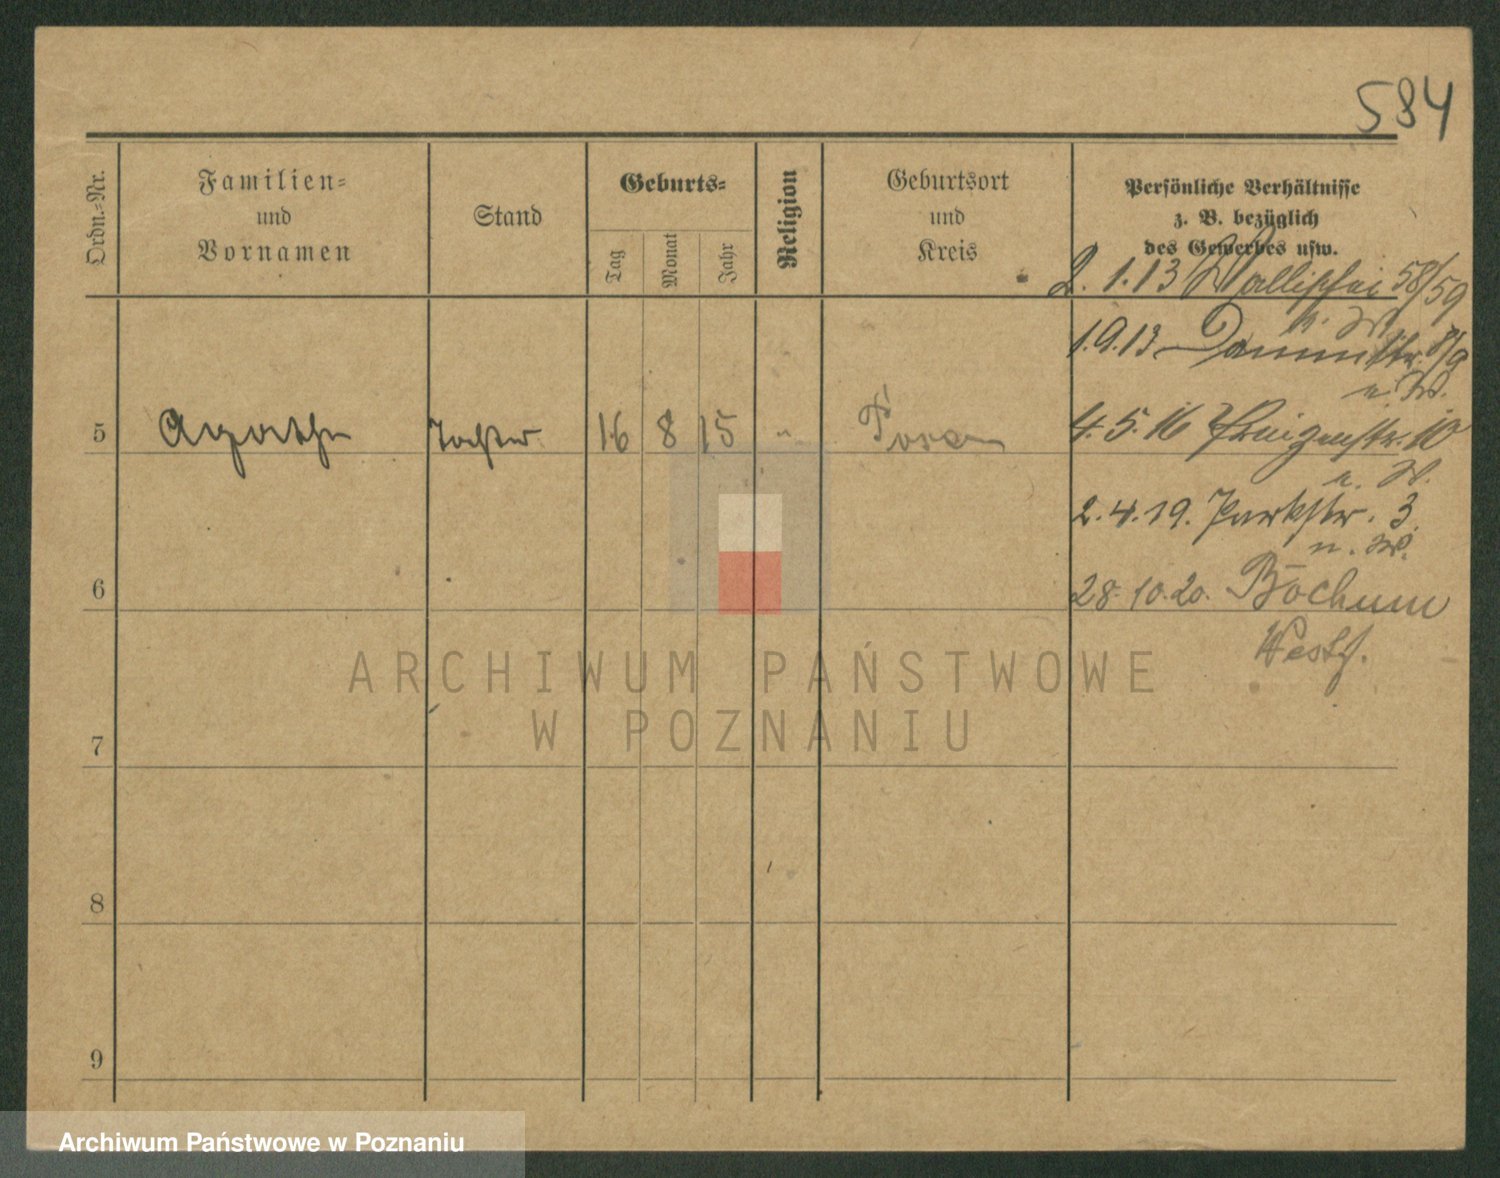 584
Ordn.-Nr.
Familien-
und
Vornamen
Stand
Geburts-
Tag
Monat
Jahr
Religion
Geburtsort
und
Kreis
Persönliche Verhältnisse
z. B. bezüglich
des Gewerbes usw.
2. 1. 13 Wallischei 58/59
1. 9. 13 8/9
5 Agathe Tochter 16 8 15 " Posen
4. 5. 16 10
2. 4. 19. Parkstr. 3.
n. W.
6
28. 10. 20. Bochum
Westf.
7
8
9
ARCHIWUM PAŃSTWOWE
W POZNANIU
Archiwum Państwowe w Poznaniu